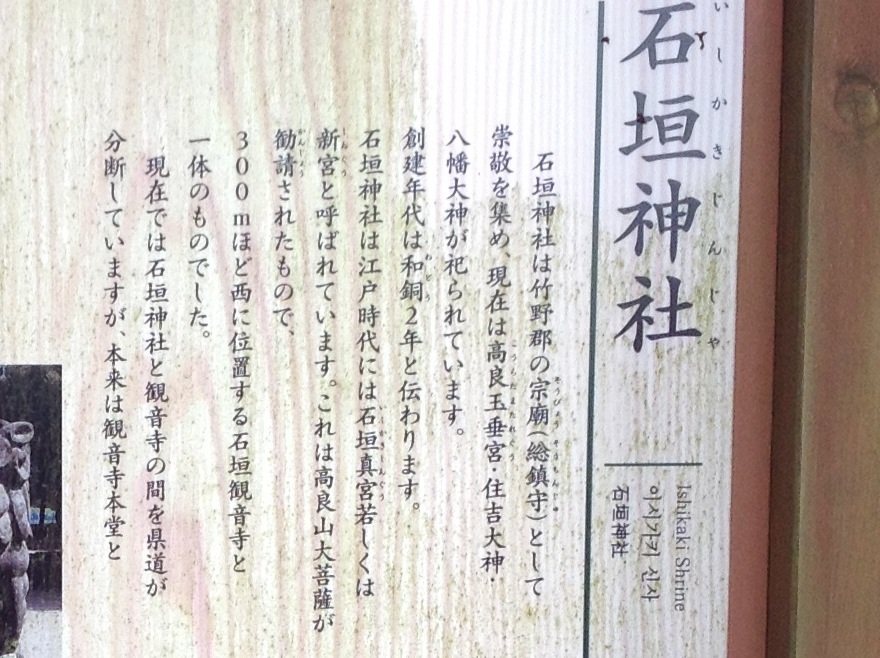 石垣神社
いしかきじんじゃ
Ishikaki Shrine
이시가키 신사
石垣神社
石垣神社は竹野郡の宗廟(総鎮守)として
そうびょう そうちんじゅ
崇敬を集め、現在は高良玉垂宮・住吉大神・
こうらたまたれぐう
八幡大神が祀られています。
創建年代は和銅2年と伝わります。
わどう
石垣神社は江戸時代には石垣真宮若しくは
いしかきしんぐう
新宮と呼ばれています。これは高良山大菩薩が
しんぐう
勧請されたもので、
かんじょう
300mほど西に位置する石垣観音寺と
一体のものでした。
現在では石垣神社と観音寺の間を県道が
分断していますが、本来は観音寺本堂と